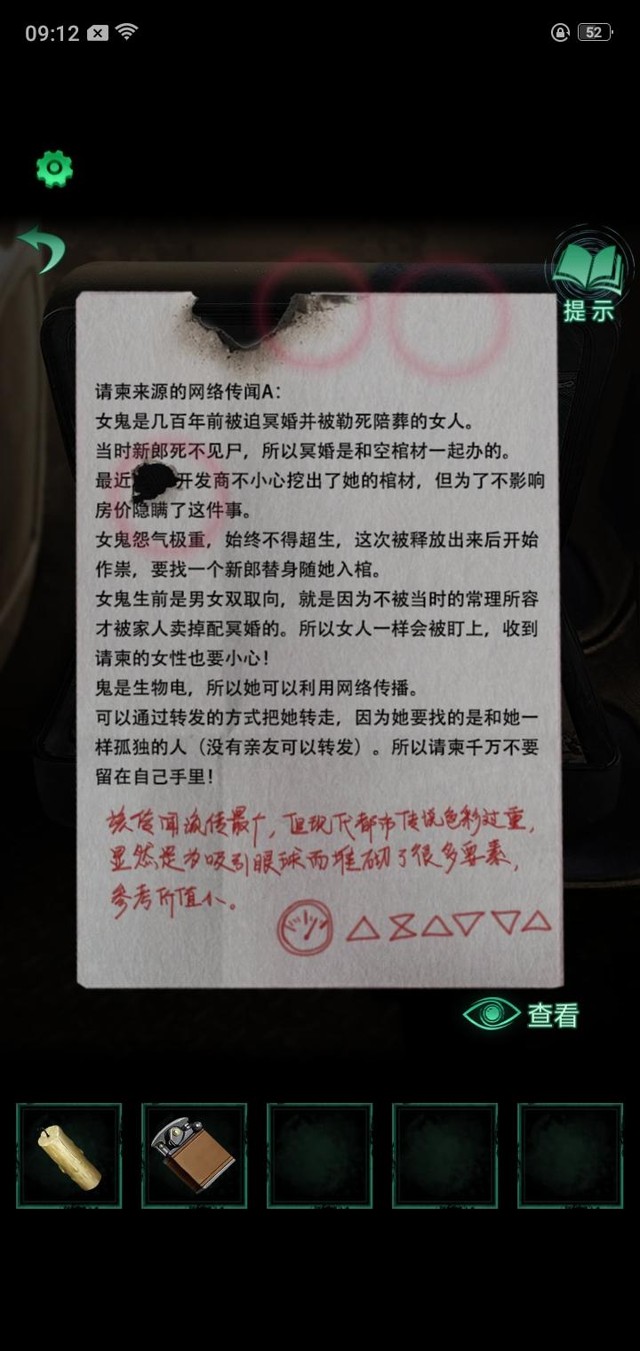 09:12
52
提示
请柬来源的网络传闻A：
女鬼是几百年前被迫冥婚并被勒死陪葬的女人。
当时新郎死不见尸，所以冥婚是和空棺材一起办的。
最近 开发商不小心挖出了她的棺材，但为了不影响
房价隐瞒了这件事。
女鬼怨气极重，始终不得超生，这次被释放出来后开始
作祟，要找一个新郎替身随她入棺。
女鬼生前是男女双取向，就是因为不被当时的常理所容
才被家人卖掉配冥婚的。所以女人一样会被盯上，收到
请柬的女性也要小心！
鬼是生物电，所以她可以利用网络传播。
可以通过转发的方式把她转走，因为她要找的是和她一
样孤独的人（没有亲友可以转发）。所以请柬千万不要
留在自己手里！
该传闻流传最广，但现代都市传说色彩过重，
显然是为吸引眼球而堆砌了很多要素，
参考价值小。
查看